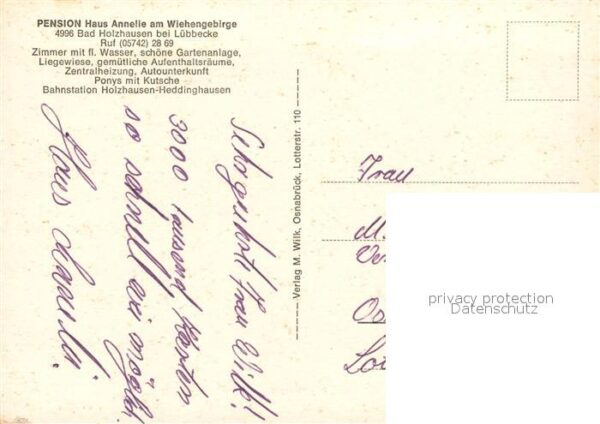 PENSION Haus Annelie am Wiehengebirge
4996 Bad Holzhausen bei Lübbecke
Ruf (05742) 28 69
Zimmer mit fl. Wasser, schöne Gartenanlage,
Liegewiese, gemütliche Aufenthaltsräume,
Zentralheizung, Autounterkunft
Ponys mit Kutsche
Bahnstation Holzhausen-Heddinghausen
Sehr geehrte Frau Wilk!
3000 tausend Karten
so schnell wie möglich.
Haus Annelie.
Verlag M. Wilk, Osnabrück, Lotterstr. 110
Frau
M.
Os
privacy protection
Datenschutz